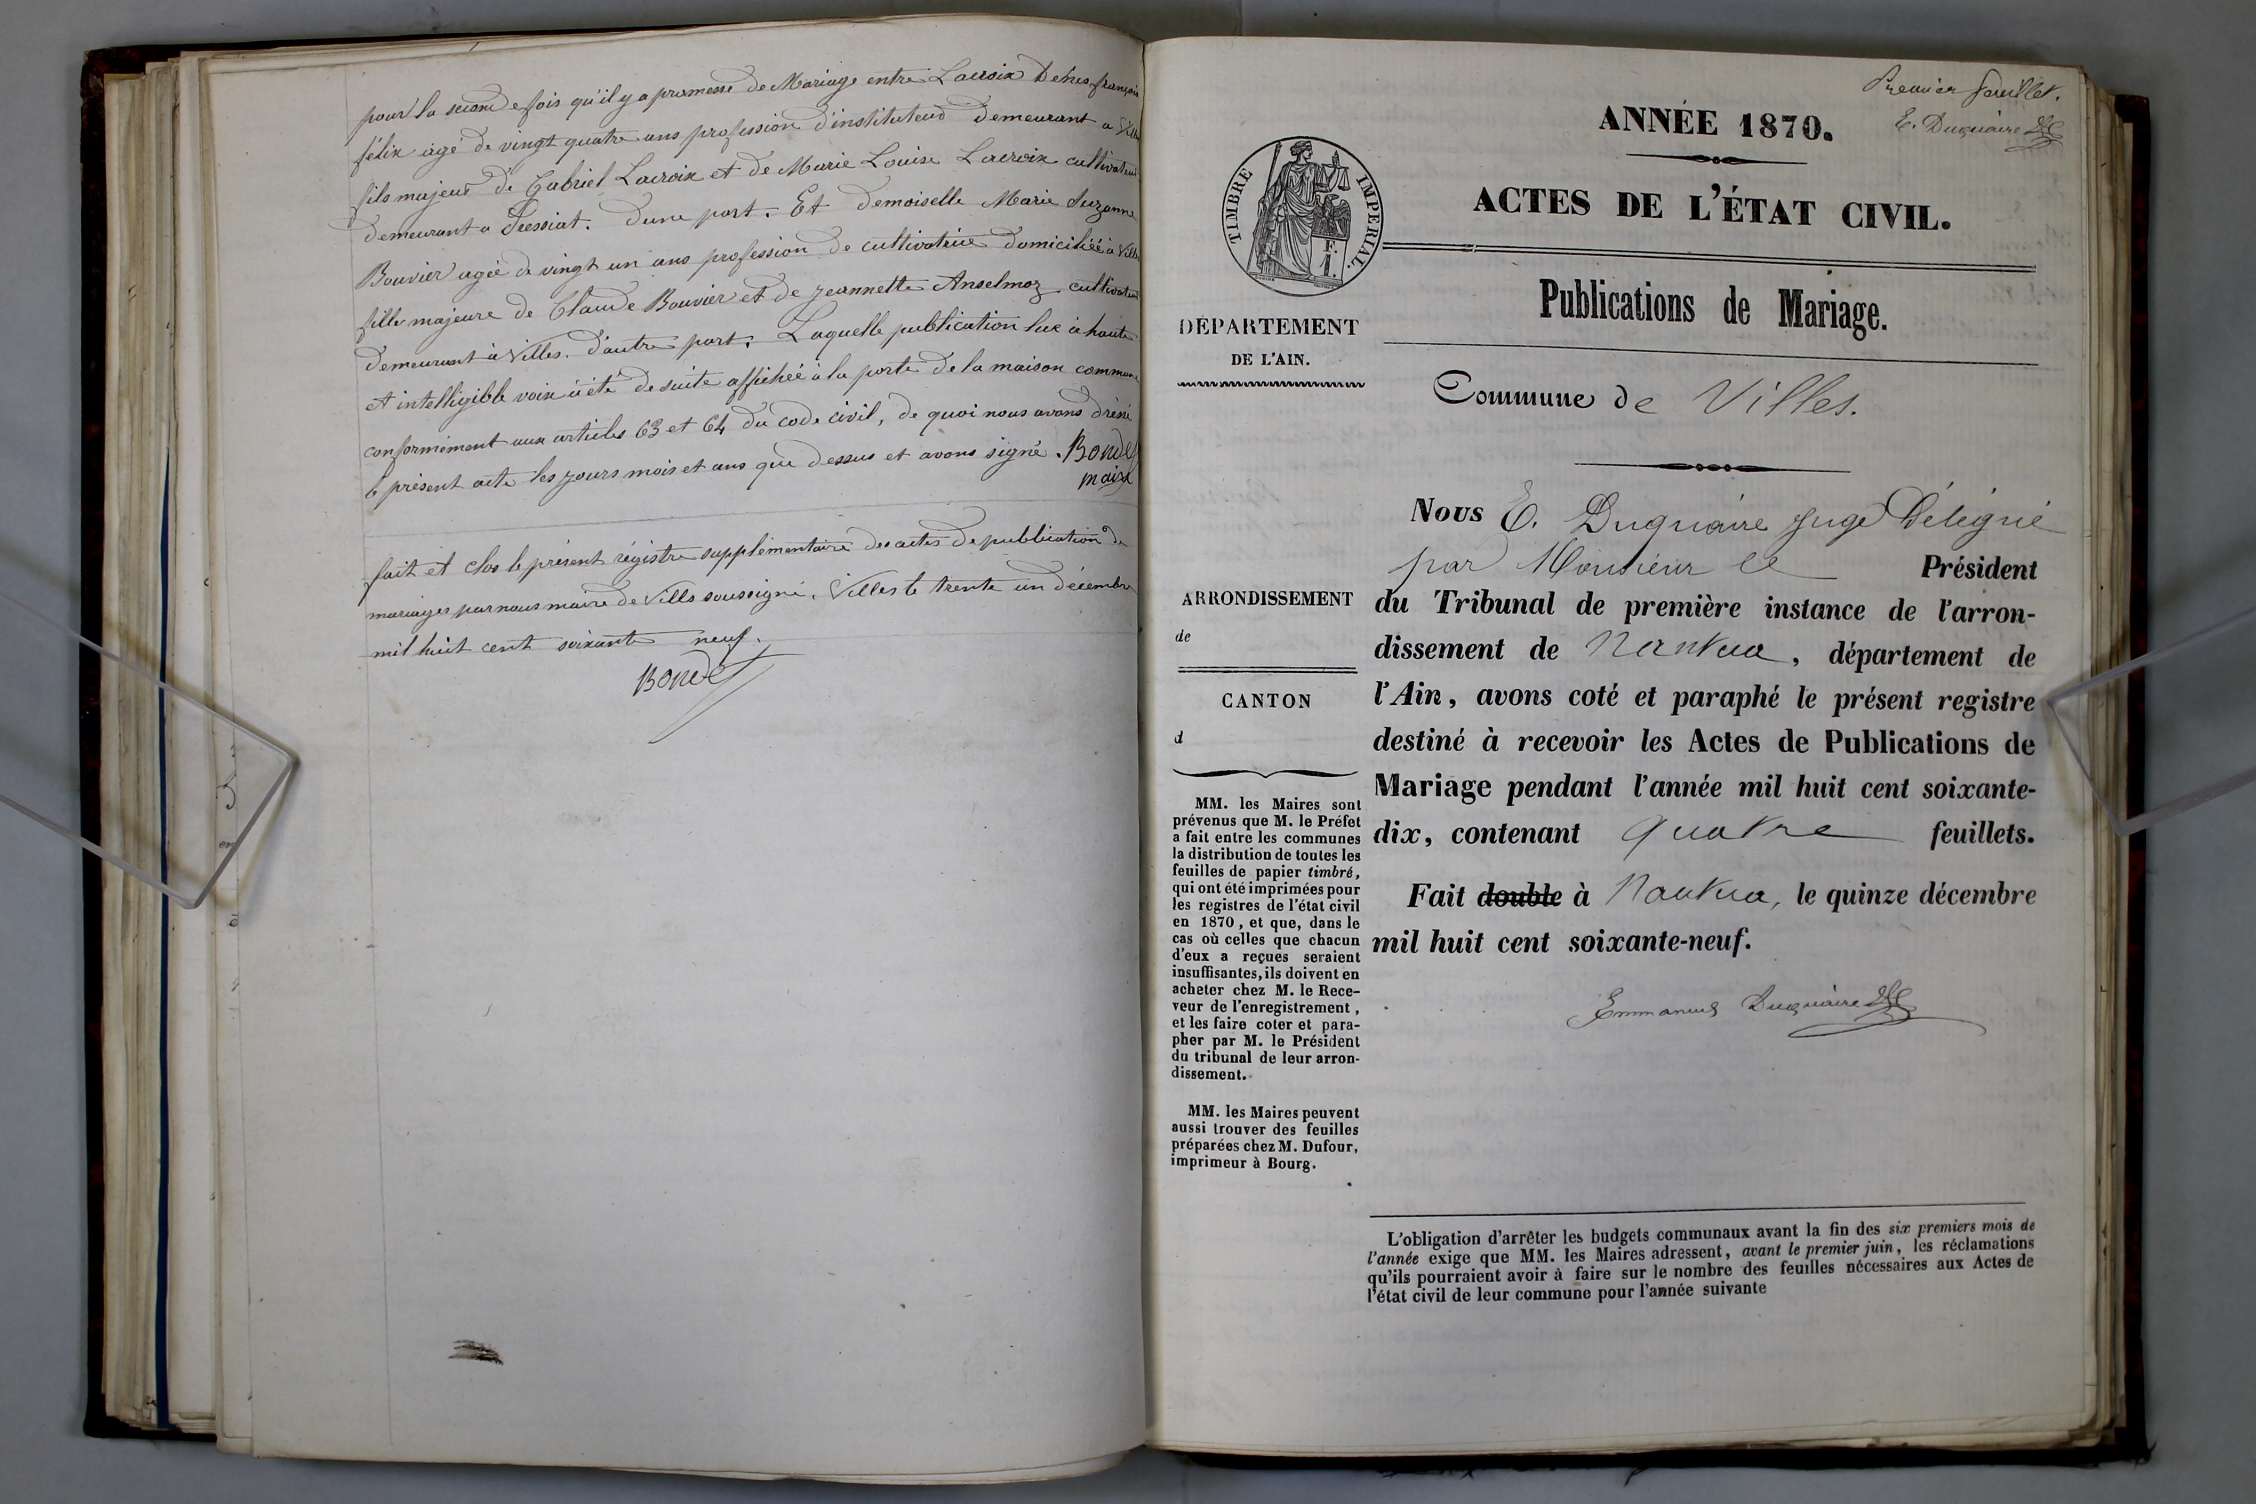 pour la seconde fois qu'il y a promesse de Mariage entre Lacroix Denis françois
félix agé de vingt quatre ans profession d'instituteur demeurant a Villes
fils majeur de Gabriel Lacroix et de Marie Louise Lacroix cultivateurs
demeurant a Pressiat. d'une part. Et demoiselle Marie Suzanne
Bouvier agée de vingt un ans profession de cultivatrice domiciliée à Villes
fille majeure de Claude Bouvier et de jeannette Anselmoz cultivateurs
demeurant à Villes. d'autre part. Laquelle publication lue à haute
et intelligible voix à été de suite affichée à la porte de la maison commune
conformément aux articles 63 et 64 du code civil, de quoi nous avons dressé
le présent acte les jours mois et ans que dessus et avons signé. Bondet
maire
fait et clos le présent régistre supplémentaire des actes de publication de
mariages par nous maire de Villes soussigné. Villes le trente un décembre
mil huit cent soixante neuf.
Bondet
Premier feuillet.
E. Duquaire
ANNÉE 1870.
ACTES DE L'ÉTAT CIVIL.
TIMBRE IMPERIAL.
F.
1.
Publications de Mariage.
DÉPARTEMENT
DE L'AIN.
Commune de Villes.
Nous E. Duquaire juge Délégué
par Monsieur le Président
du Tribunal de première instance de l'arron-
dissement de Nantua, département de
l'Ain, avons coté et paraphé le présent registre
destiné à recevoir les Actes de Publications de
Mariage pendant l'année mil huit cent soixante-
dix, contenant quatre feuillets.
Fait double à Nantua, le quinze décembre
mil huit cent soixante-neuf.
Emmanuel Duquaire
ARRONDISSEMENT
de
CANTON
d
MM. les Maires sont
prévenus que M. le Préfet
a fait entre les communes
la distribution de toutes les
feuilles de papier timbré,
qui ont été imprimées pour
les registres de l'état civil
en 1870, et que, dans le
cas où celles que chacun
d'eux a reçues seraient
insuffisantes, ils doivent en
acheter chez M. le Rece-
veur de l'enregistrement,
et les faire coter et para-
pher par M. le Président
du tribunal de leur arron-
dissement.
MM. les Maires peuvent
aussi trouver des feuilles
préparées chez M. Dufour,
imprimeur à Bourg.
L'obligation d'arrêter les budgets communaux avant la fin des six premiers mois de
l'année exige que MM. les Maires adressent, avant le premier juin, les réclamations
qu'ils pourraient avoir à faire sur le nombre des feuilles nécessaires aux Actes de
l'état civil de leur commune pour l'année suivante